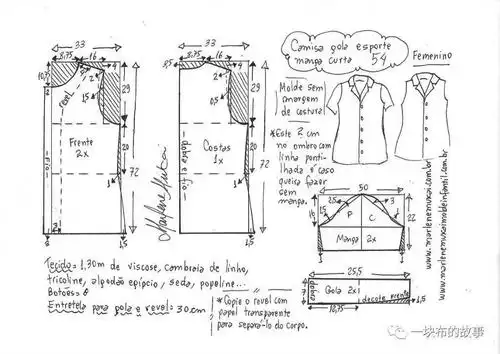 33
8,75 16
4
2
10,5
2
1,5
29
revel
Frente
2x
20
72
1
Fio
2
1,5
33
8,75 16
1,5
4
2
0,5
29
Costas
1x
20
72
1
dobra e fio
1,5
Marlene Mukai
Camisa gola esporte
manga curta 54
Femenino
Molde sem
margem
de costura
*Este 2 cm
no ombro com
linha ponti-
lhada é caso
queira fazer
sem
manga.
www.marlenemukai.com.br
www.marlenemukaimoldeinfantil.com.br
50
2,5
3
1,5
2
16
22
P C
Manga 2x
25,5
dobra
Gola 2x
decote frente
18,75
1,5
Tecido= 1,30m de viscose, cambraia de linho,
tricoline, algodão egípcio, seda, popeline...
Botões= 6
Entretela para gola e revel= 30cm
*Copie o revel com
papel transparente
para separá-lo do corpo.
一块布的故事